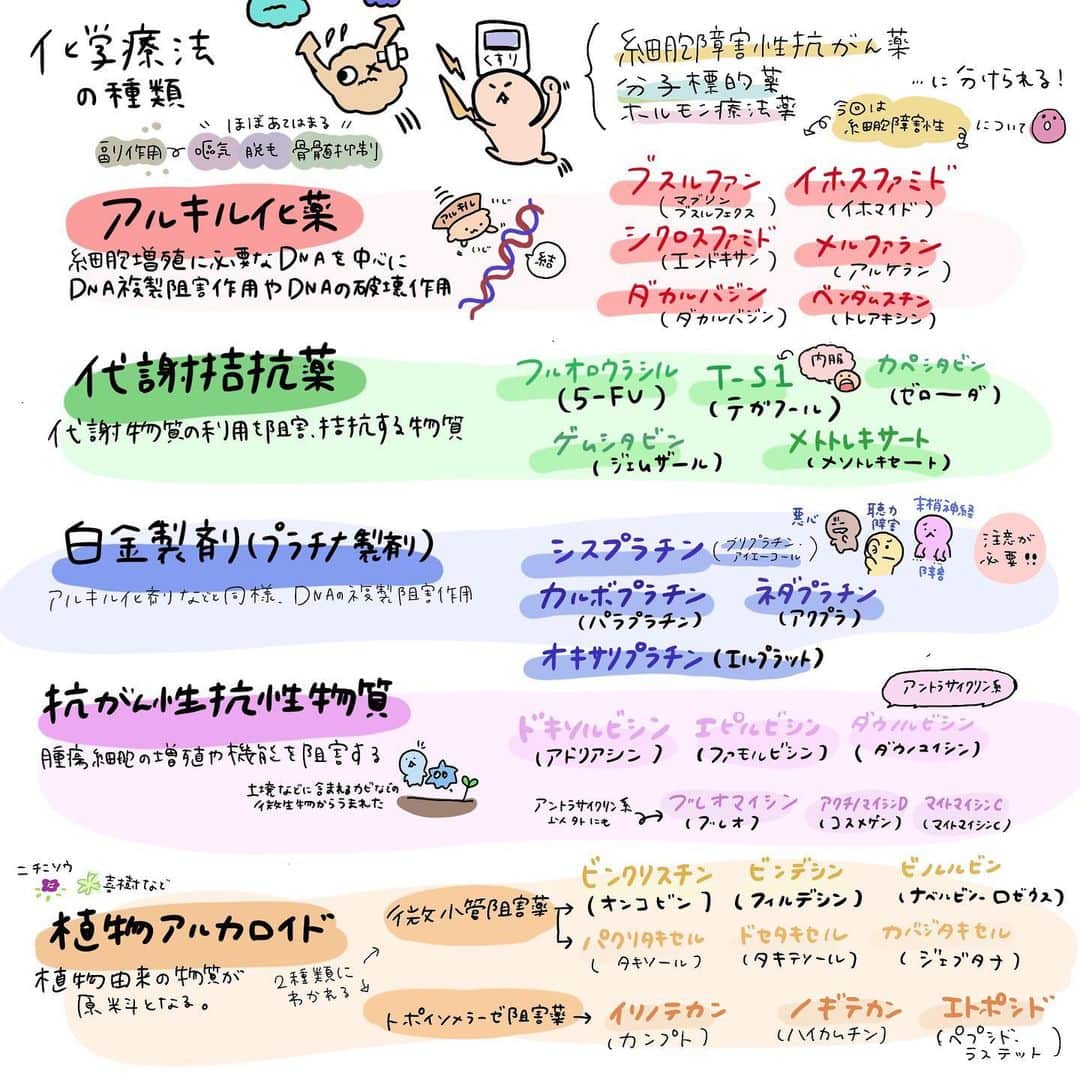 化学療法
の種類
くすり
細胞障害性抗がん薬
分子標的薬
ホルモン療法薬
…に分けられる!
今回は
細胞障害性
について
ほぼあてはまる
副作用
嘔気
脱毛
骨髄抑制
アルキル化薬
細胞増殖に必要なDNAを中心に
DNA複製阻害作用やDNAの破壊作用
アルキル
いじ
いじ
結
ブスルファン
(マブリン
ブスルフェクス)
イホスファミド
(イホマイド)
シクロスファミド
(エンドキサン)
メルファラン
(アルケラン)
ダカルバジン
(ダカルバジン)
ベンダムスチン
(トレアキシン)
代謝拮抗薬
代謝物質の利用を阻害、拮抗する物質
フルオロウラシル
(5-FU)
T-S1
(テガフール)
内服
カペシタビン
(ゼローダ)
ゲムシタビン
(ジェムザール)
メトトレキサート
(メソトレキセート)
白金製剤(プラチナ製剤)
アルキル化剤などと同様、DNAの複製阻害作用
シスプラチン
(ブリプラチン・
アイエーコール)
悪心
聴力
障害
末梢神経
障害
注意が
必要!!
カルボプラチン
(パラプラチン)
ネダプラチン
(アクプラ)
オキサリプラチン(エルプラット)
抗がん性抗性物質
腫瘍細胞の増殖や機能を阻害する
土壌などに含まれるカビなどの
微生物からうまれた
アントラサイクリン系
ドキソルビシン
(アドリアシン)
エピルビシン
(ファモルビシン)
ダウノルビシン
(ダウノマイシン)
アントラサイクリン系
以外にも
ブレオマイシン
(ブレオ)
アクチノマイシンD
(コスメゲン)
マイトマイシンC
(マイトマイシンC)
ニチニソウ
喜樹など
植物アルカロイド
植物由来の物質が
原料となる。
2種類に
わかれる
微小管阻害薬
ビンクリスチン
(オンコビン)
ビンデシン
(フィルデシン)
ビノルルビン
(ナベルビン・ロゼウス)
パクリタキセル
(タキソール)
ドセタキセル
(タキテソール)
カバジタキセル
(ジェブタナ)
トポイソメラーゼ阻害薬
イリノテカン
(カンプト)
ノギテカン
(ハイカムチン)
エトポシド
(ペプシド・
ラステット)